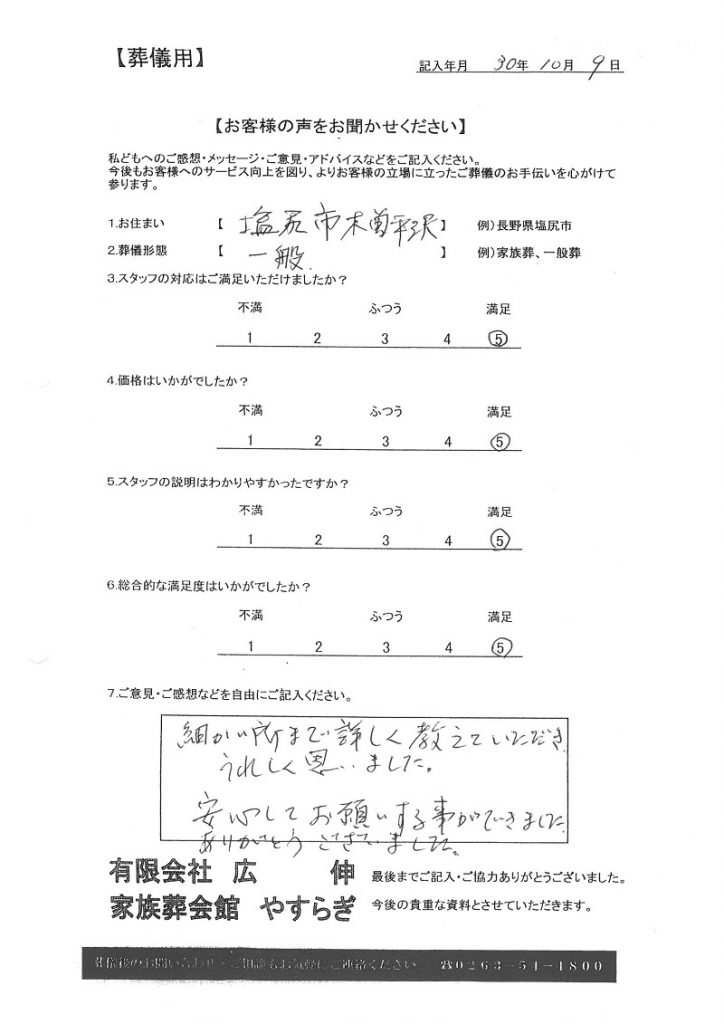 【葬儀用】
記入年月 30年 10月 9日
【お客様の声をお聞かせください】
私どもへのご感想・メッセージ・ご意見・アドバイスなどをご記入ください。
今後もお客様へのサービス向上を図り、よりお客様の立場に立ったご葬儀のお手伝いを心がけて
参ります。
1.お住まい 【 塩尻市木曽平沢 】 例）長野県塩尻市
2.葬儀形態 【 一般 】 例）家族葬、一般葬
3.スタッフの対応はご満足いただけましたか？
不満 ふつう 満足
1 2 3 4 ⑤
4.価格はいかがでしたか？
不満 ふつう 満足
1 2 3 4 ⑤
5.スタッフの説明はわかりやすかったですか？
不満 ふつう 満足
1 2 3 4 ⑤
6.総合的な満足度はいかがでしたか？
不満 ふつう 満足
1 2 3 4 ⑤
7.ご意見・ご感想などを自由にご記入ください。
細かい所まで詳しく教えていただき
うれしく思いました。
安心してお願いする事ができました
ありがとうございました。
有限会社 広 伸 最後までご記入・ご協力ありがとうございました。
家族葬会館 やすらぎ 今後の貴重な資料とさせていただきます。
葬儀後のお問い合わせ・ご相談もお気軽にご連絡ください ☎0263-51-4800